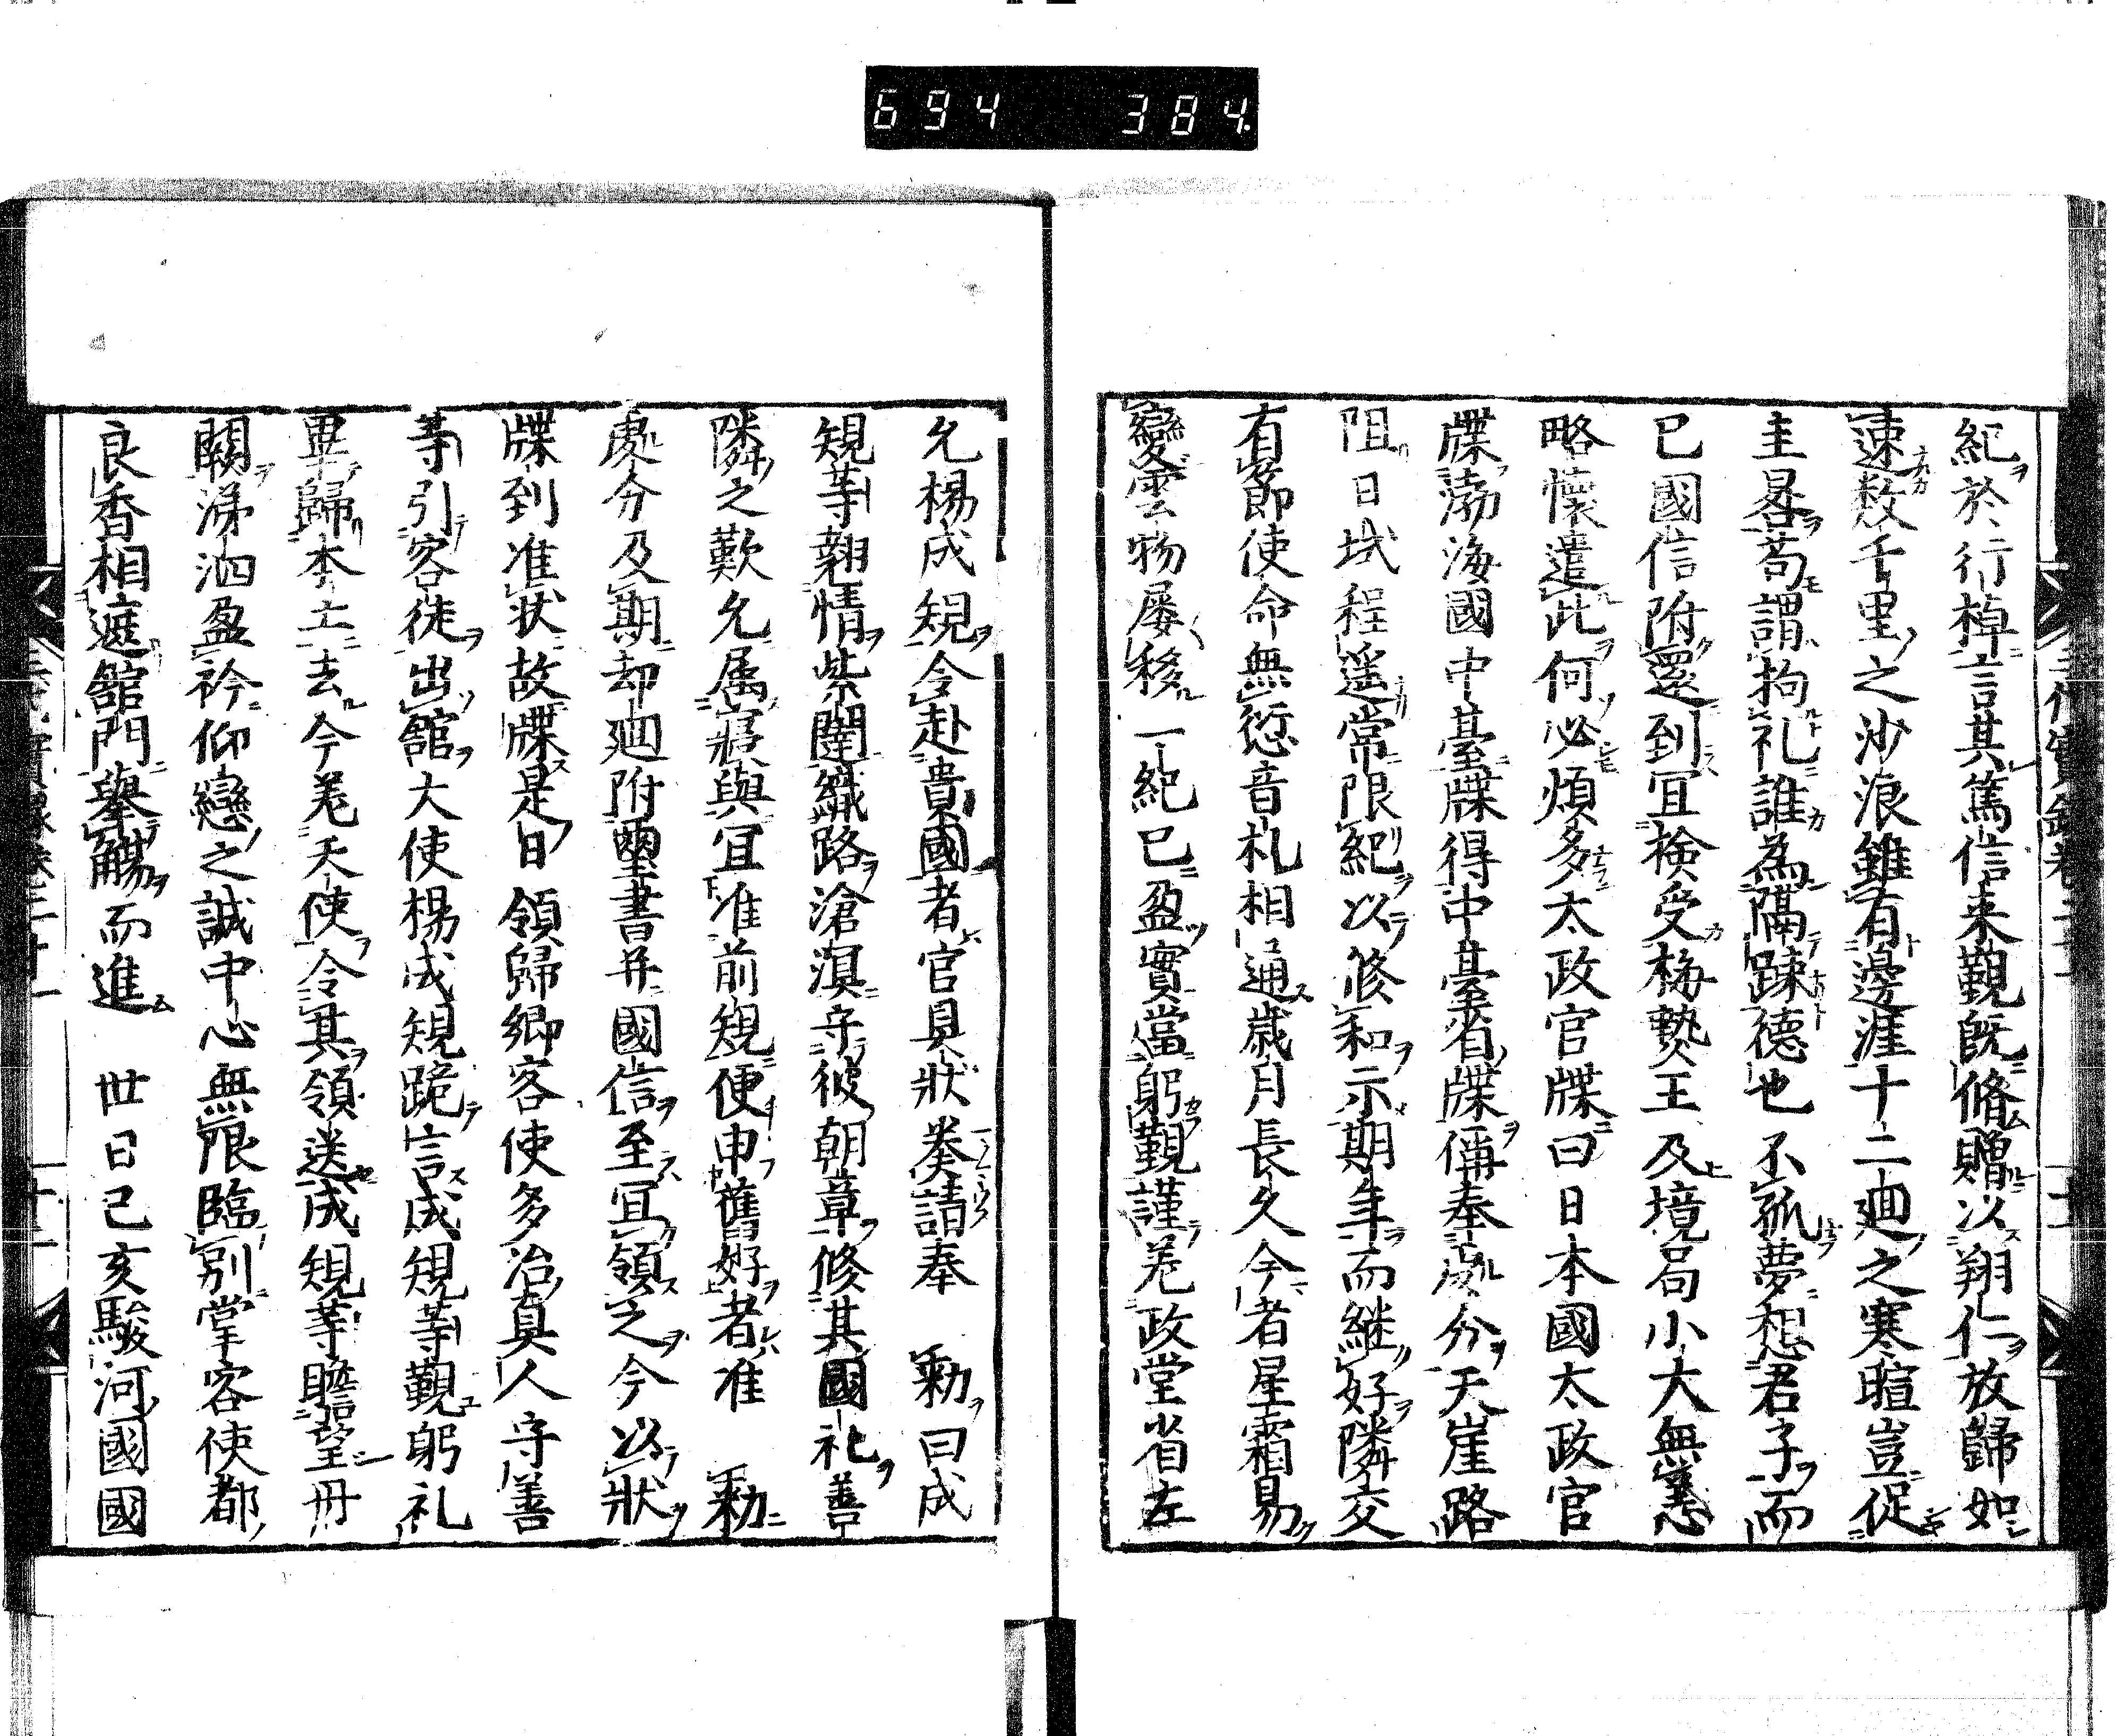 694 384.
紀於行棹言其篤信来覲既脩贈以翔仁放歸如
速数千里之沙浪雖有邊涯十二廻之寒暄豈促
圭晷苟謂拘礼誰為隔踈德也不孤夢想君子而
已國信附還到宜検受梅𤍠王及境局小大無恙
略懐遣此何必煩多太政官牒曰日本國太政官
牒渤海國中臺牒得中臺省牒偁奉處分天崖路
阻日域程遥常限紀以修和示期年而継好隣交
有節使命無愆音札相通歳月長久今者星霜易
變雲物屡移一紀已盈實當躬覲謹差政堂省左
允楊成規令赴貴國者官具狀奏請奉 勅曰成
規等翹情紫闥織路滄溟守彼朝章修其國礼善
隣之歎允属寤與宜准前規便申舊好者准 勅
處分及期却廻附璽書并國信至宜領之今以狀
牒到准状故牒是日領歸郷客使多治真人守善
等引客徒出舘大使楊成規跪言成規等覲躬礼
畢歸本土去今差天使令其領送成規等瞻望丹
闕涕泗盈衿仰戀之誠中心無限臨別掌客使都
良香相遮舘門舉觴而進 廿日己亥駿河國國